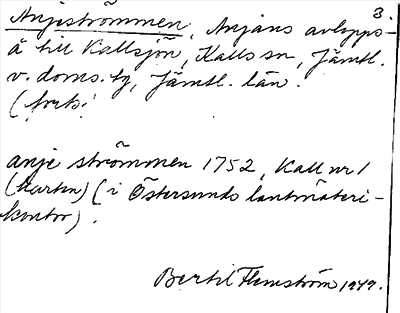 3
Anjeströmmen, Anjans avlopps-
å till Kallsjön, Kalls sn, Jämtl.
v. doms. tg, Jämtl. län.
(forts.
anje strömmen 1752, Kall nr 1
(Karta) (i Östersunds lantmäteri-
kontor).
Bertil Flemström 1949.